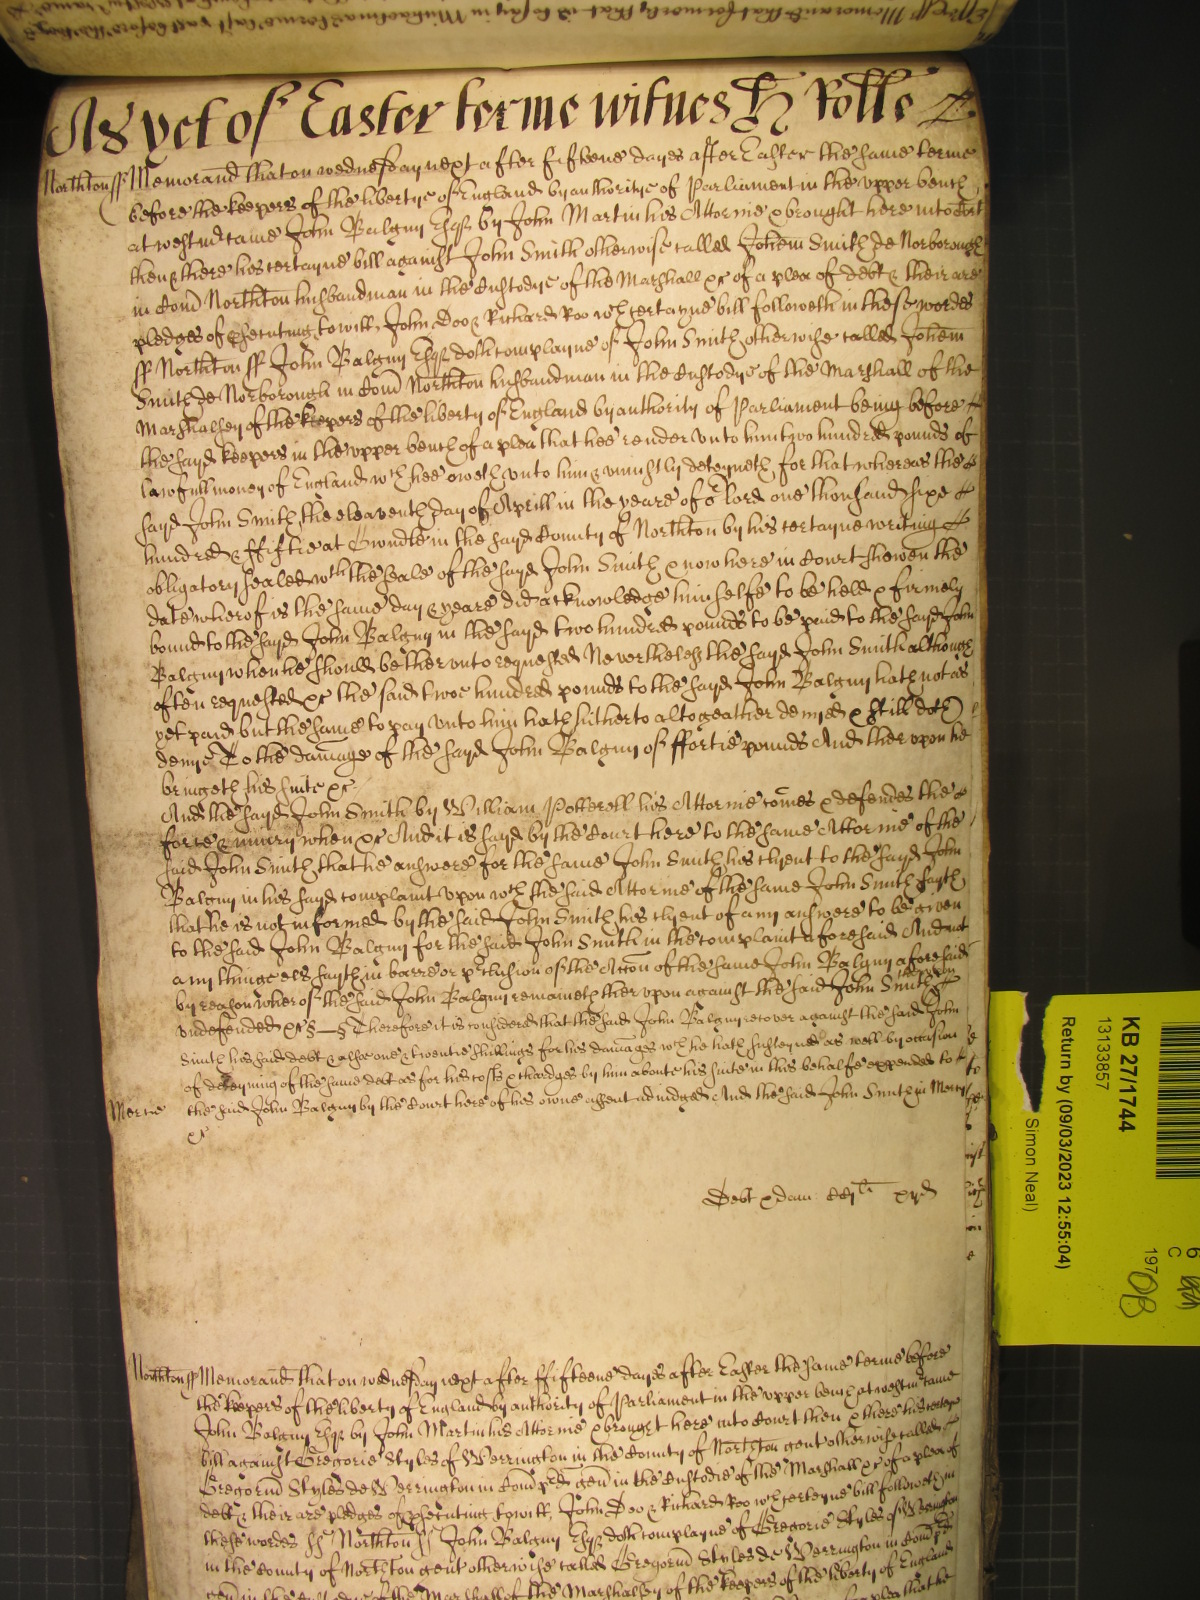 As yet of Easter terme witnes H Rolle
Northton ss Memorand that on wednesday next after fifteene dayes after Easter the same terme
before the keepers of the libertye of England by authoritye of Parliament in the upper bench
at westmr came John Balguy Esqr by John Martin his Attornie & brought here into Court
then & there his certayne bill against John Smith otherwise called Johem Smith de Norborough
in Com Northton husbandman in the Custodye of the Marshall &c of a plea of debt & their are
pledges of prosecuting to witt, John Doo & Richard Roo wch certayne bill followeth in these wordes
ss Northton ss John Balguy Esqr doth complayne of John Smith otherwise called Johem
Smith de Norborough in Com Northton husbandman in the Custodye of the Marshall of the
Marshalsey of the keepers of the liberty of England by authority of Parliament being before
the sayd keepers in the upper bench of a plea that hee render unto him two hundred pounds of
lawfull money of England wch hee oweth unto him & uniustly deteyneth for that whereas the
sayd John Smith the eleaventh day of Aprill in the yeare of or lord one thousand sixe
hundred & ffiftie at Owndle in the sayd County of Northton by his certayne writing
obligatory sealed wth the seale of the sayd John Smith & now here in Court shewen the
date wherof is the same day & yeare did acknowledge himselfe to be held & firmely
bound to the sayd John Balguy in the sayd two hundred pounds to be paid to the sayd John
Balguy when he should be therunto requested Neverthelesse the sayd John Smith although
often requested &c the said twoe hundred pounds to the sayd John Balguy hath not as
yet paid but the same to pay unto him hath hitherto altogeather denyed & still doth
denye To the damage of the sayd John Balguy of ffortie pounds And therupon he
bringeth his suite &c
And the sayd John Smith by William Potterell his Attornie comes & defendes the
force & iniury when &c And it is sayd by the Court here to the same Attornie of the
said John Smith that he answere for the same John Smith his clyent to the sayd John
Balguy in his sayd complaint upon wch the said Attornie of the same John Smith sayth
that he is not informed by the said John Smith his clyent of any answere to be given
to the said John Balguy for the said John Smith in the complaint aforesaid And not
any thinge els sayth in barre or preclusion of the Accon of the same John Balguy aforesaid
by reason wherof the said John Balguy remaineth therupon against the said John Smith therupon
undefended &c Therefore it is considered that the said John Balguy recover against the said John
Smith his said debt & alsoe one & twentie shillings for his damages wch he hath susteyned as well by occasion
of deteyning of the same debt as for his costs & chardges by him aboute his suite in this behalfe expended to
the said John Balguy by the Court here of his owne assent adiudged And the said John Smith in Mercy
Mercie
&c
Debt & dam
Northton ss Memorand that on wednesday next after ffifteene dayes after Easter the same terme before
the keepers of the liberty of England by authority of Parliament in the upper bench at westmr came
John Balguy Esqr by John Martin his Attornie & brought here into Court then & there his certayne
bill against Gregorie Styles of Werrington in the County of Northton gent otherwise called
Gregorm Styles de Werrington in Com pred gen in the Custodie of the Marshall &c of a plea of
debt & their are pledges of prosecuting to witt, John Doo & Richard Roo wch certeyne bill followeth in
these wordes ss Northton ss John Balguy Esqr doth complayne of Gregorie Styles of Werrington
in the County of Northton gent otherwise called Gregorm Styles de Werrington in Com pred
gen in the Custodye of the Marshall of the Marshalsey of the keepers of the liberty of England
KB 27/1744
13133857
Return by (09/03/2023 12:55:04)
Simon Neal)
6
C
197